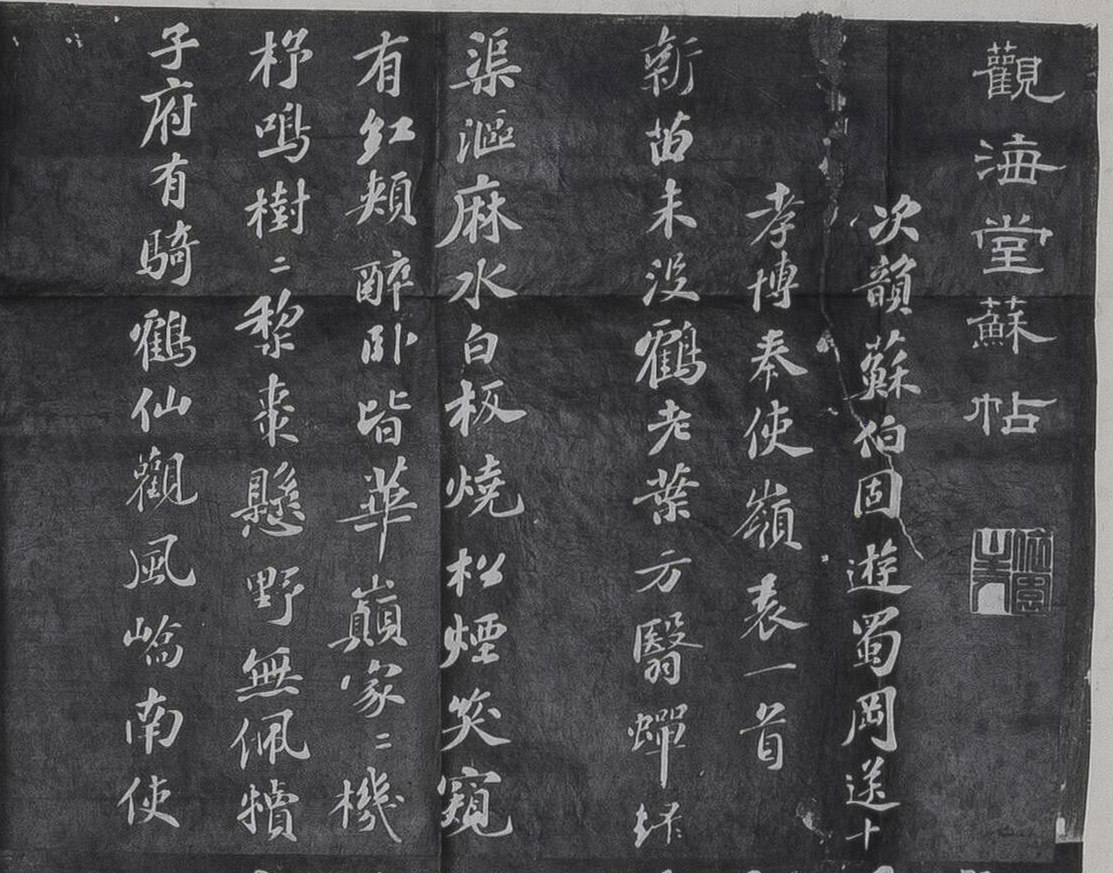 觀海堂蘇帖
次韻蘇伯固遊蜀岡送十
孝博奉使嶺表一首
新苗未沒鶴老葉方翳蟬綠
渠漚麻水白板燒松煙笑窺
有紅頰醉卧皆華巔家〻機
杼鳴樹〻黎棗懸野無佩犢
子府有騎鶴仙觀風嶠南使